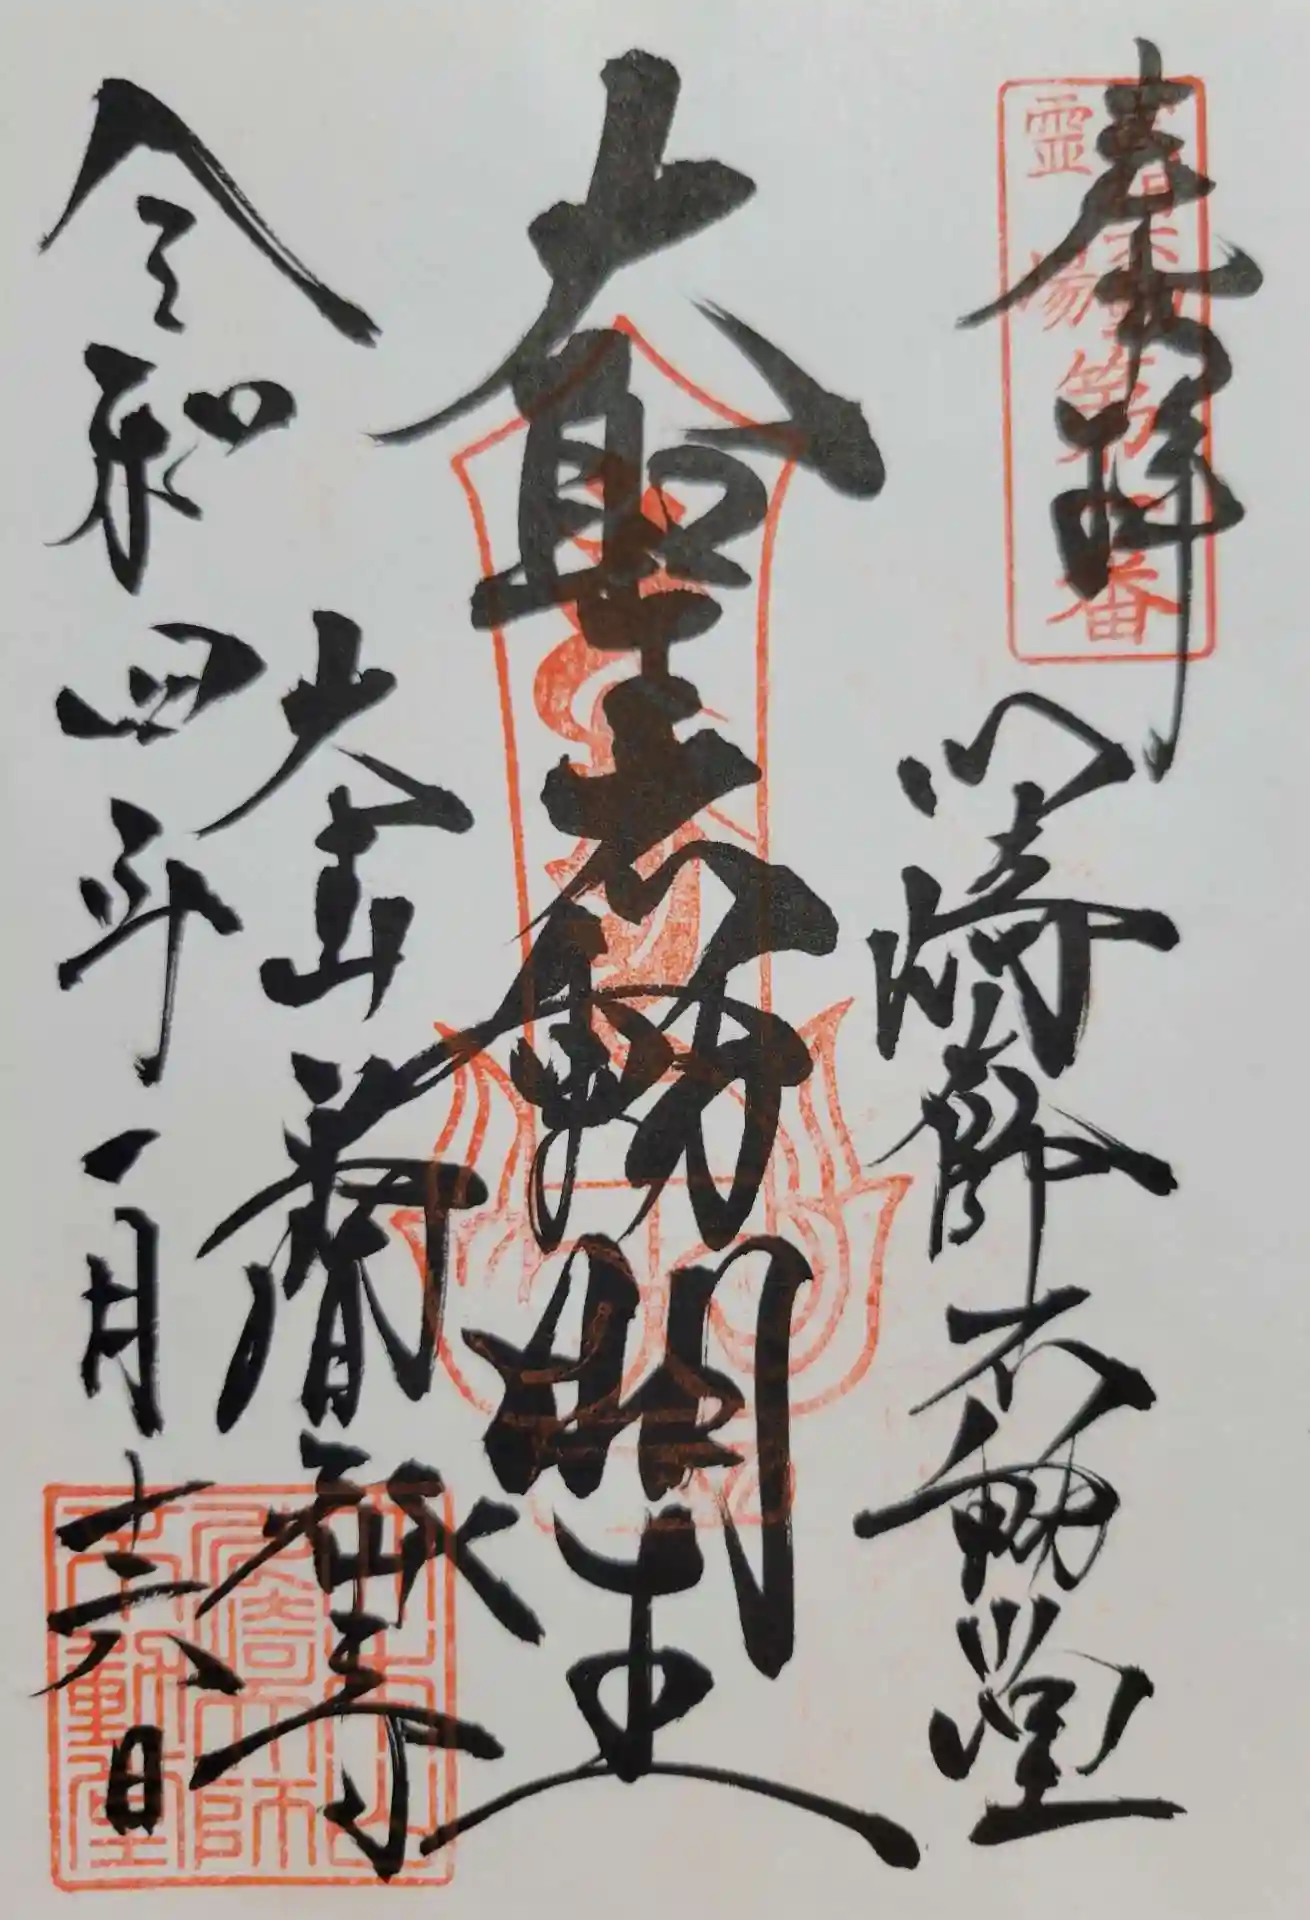 奉拝
武相不動尊
霊場第一番
川崎大師不動堂
大聖不動明王
大本山
令和四年一月 日
川崎大師
不動堂